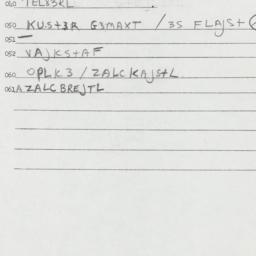 040 TEL33RL
050 KUS+3R G3MAXT / 3S FLAJS+
051 —
052 VAJKS+AF
060 OPLK3 / ZALCKAJS+L
061A ZALCBREJTL